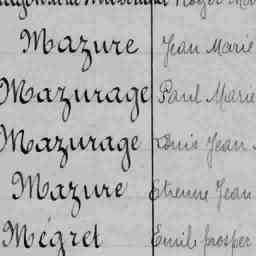 Roger
Mazure Jean Marie
Mazurage Paul Marie
Mazurage Louis Jean
Mazure Etienne Jean
Mégret Emile prosper